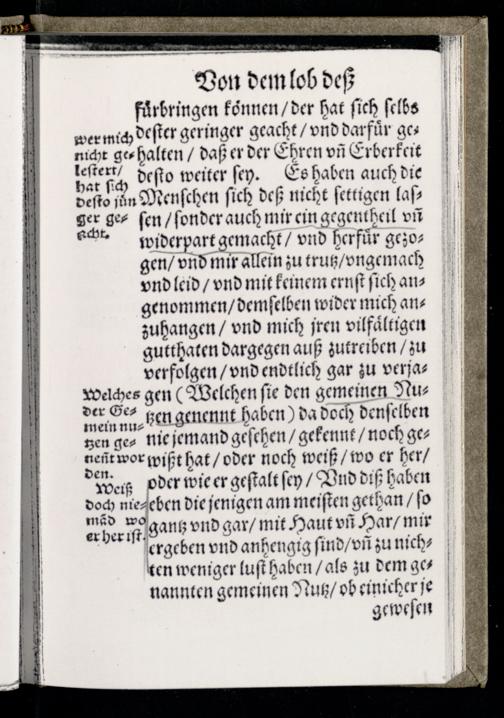 Von dem lob deß
fürbringen können / der hat sich selbs
dester geringer geacht / vnd darfür ge-
halten / daß er der Ehren vñ Erberkeit
desto weiter sey. Es haben auch die
Menschen sich deß nicht settigen las-
sen / sonder auch mir ein gegentheil vñ
widerpart gemacht / vnd herfür gezo-
gen / vnd mir allein zu trutz / vngemach
vnd leid / vnd mit keinem ernst sich an-
genommen / demselben wider mich an-
zuhangen / vnd mich jren vilfältigen
gutthaten dargegen auß zutreiben / zu
verfolgen / vnd endtlich gar zu verja-
gen (Welchen sie den gemeinen Nu-
tzen genennt haben) da doch denselben
nie jemand gesehen / gekennt / noch ge-
wißt hat / oder noch weiß / wo er her /
oder wie er gestalt sey / Vnd diß haben
eben die jenigen am meisten gethan / so
gantz vnd gar / mit Haut vñ Har / mir
ergeben vnd anhengig sind / vñ zu nich-
ten weniger lust haben / als zu dem ge-
nannten gemeinen Nutz / ob einicher je
gewesen
wer mich
nicht ge-
lestert /
hat sich
desto jün
ger ge-
acht.
Welches
der Ge-
mein nu-
tzen ge-
neñt wor
den.
Weiß
doch nie-
mãd wo
er her ist.